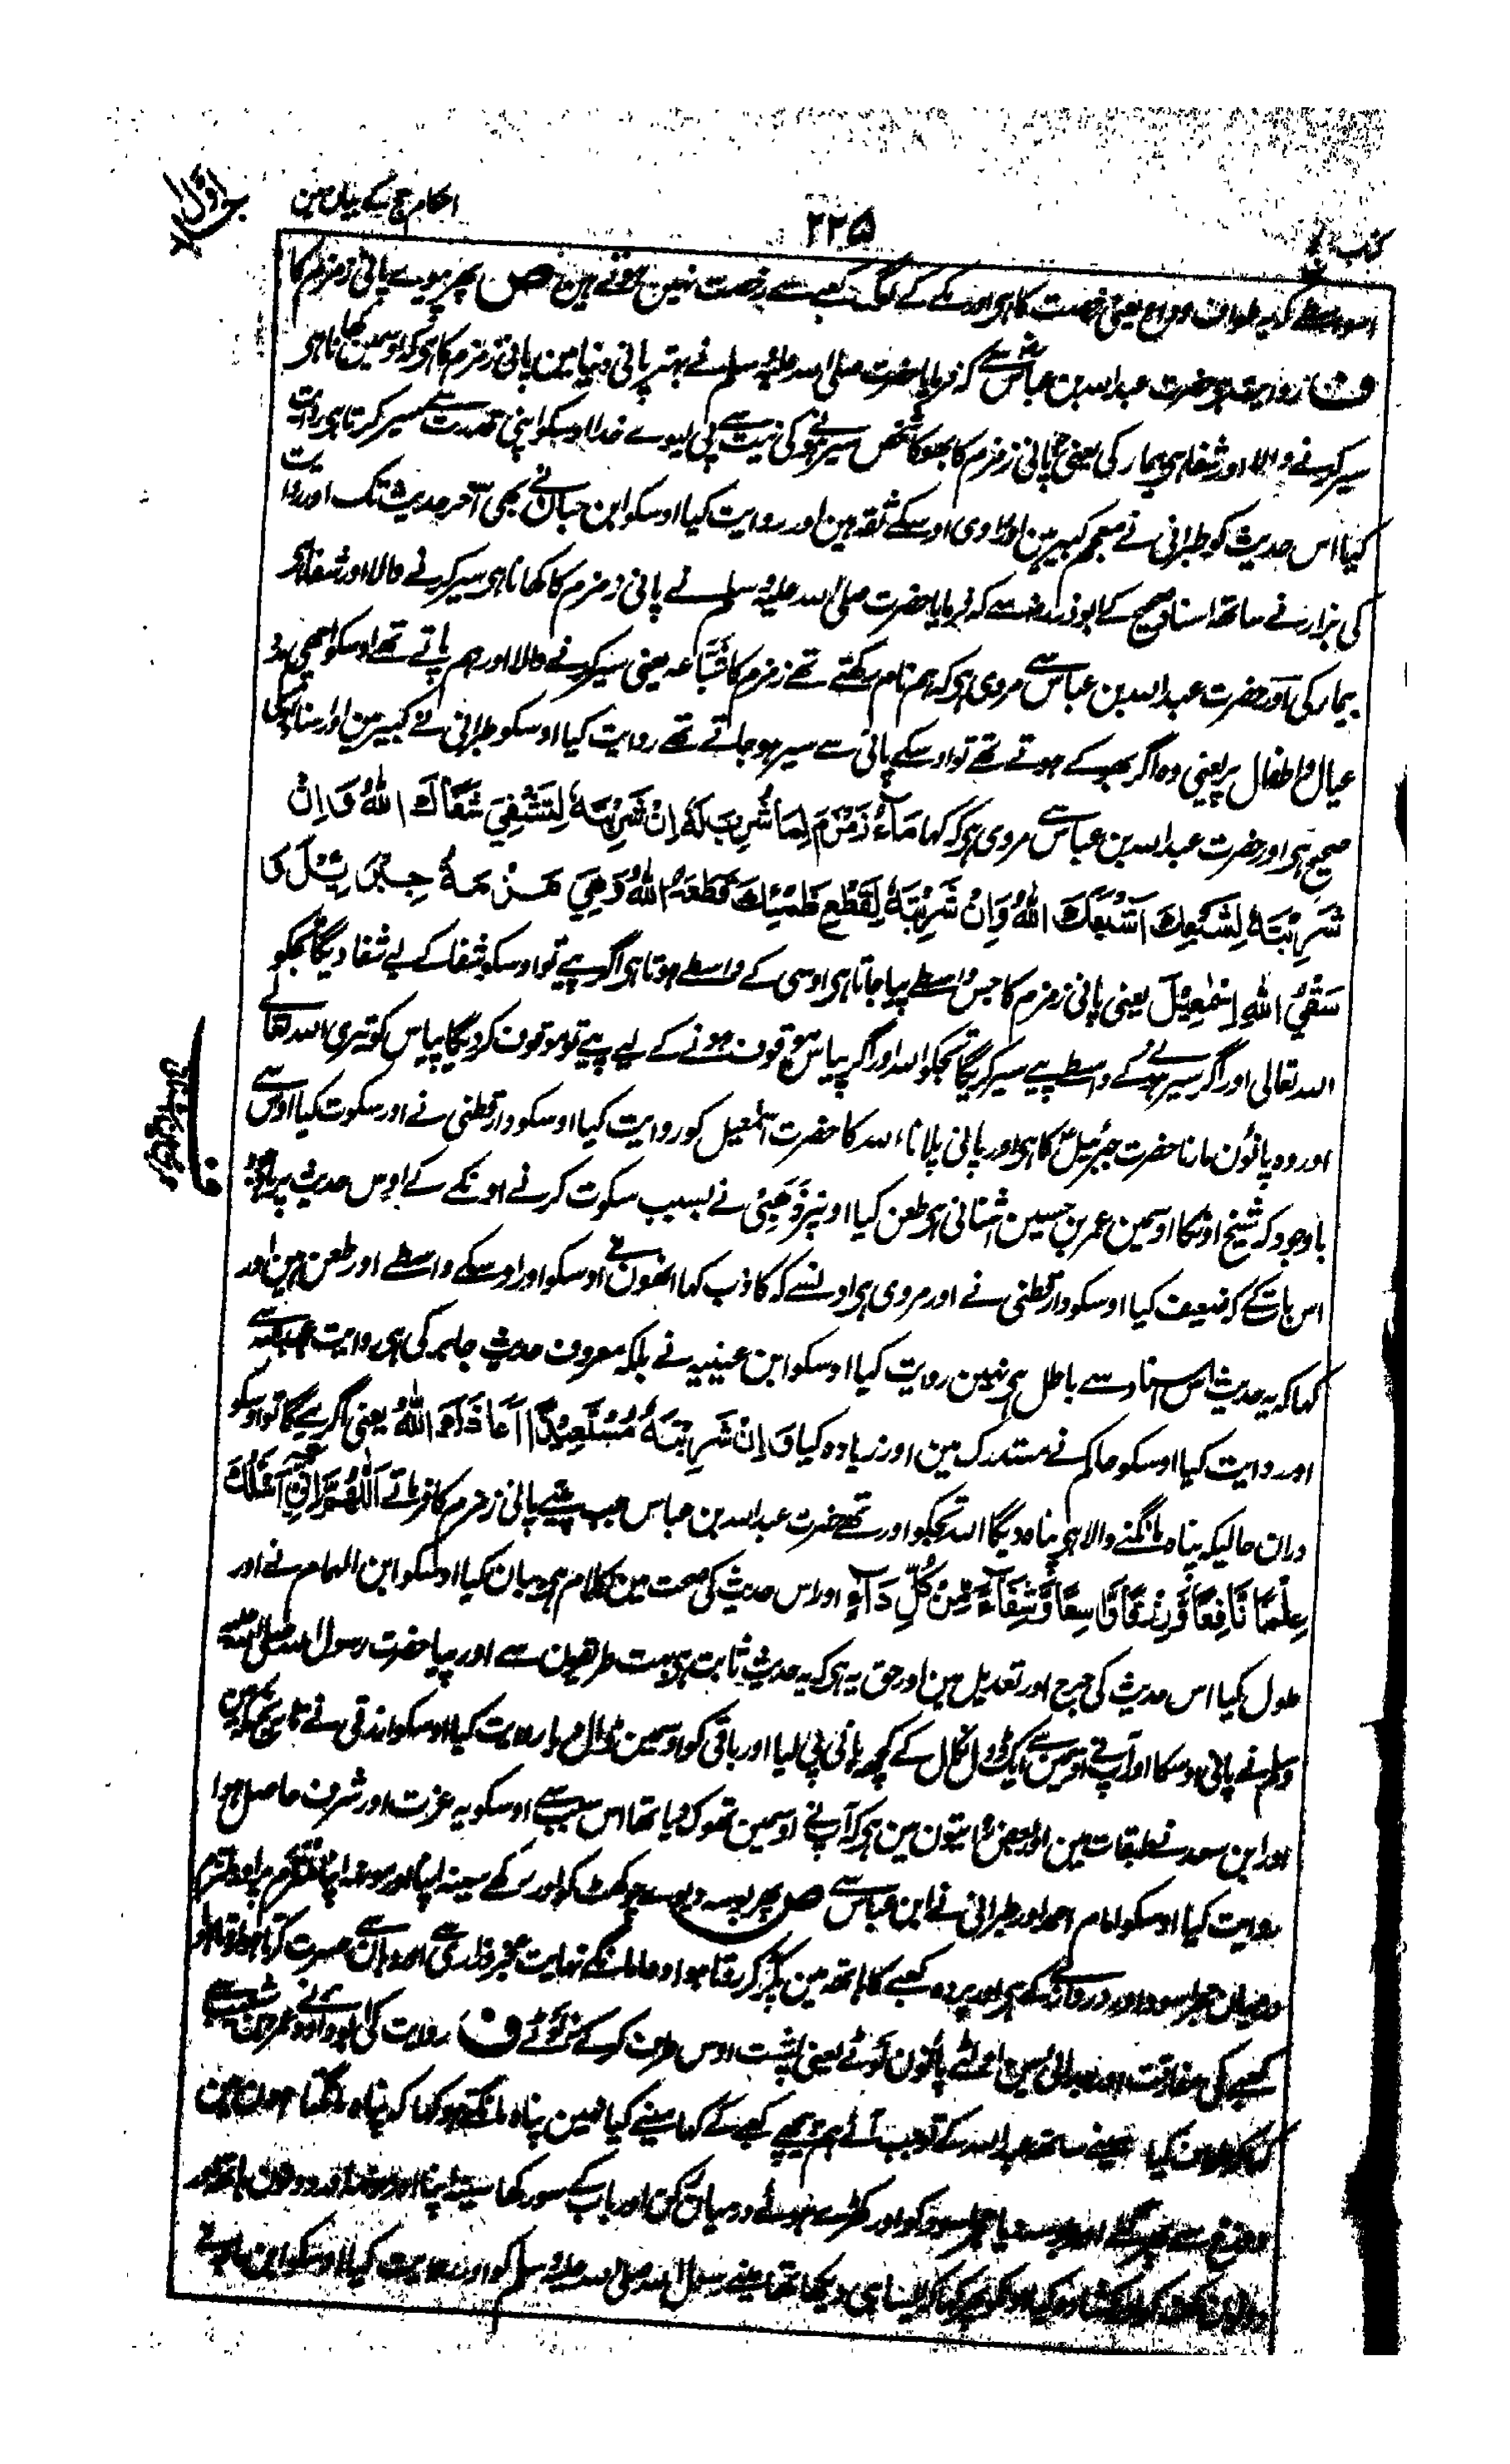 کتاب الحج
۲۲۵
احکام حج کے بیان مین
جلد اول
اسواسطے کہ یہ طواف وداع یعنی رخصت کا ہی اور مکے کے لوگ کعبے سے رخصت نہین ہوتے ہین ص پھر پیوے پانی زمزم کا
ف روایت ہی حضرت عبداللہ بن عباسؓ سے کہ فرمایا حضرت صلی اللہ علیہ وسلم نے بہتر پانی دنیا مین پانی زمزم کا ہی کہ اوسمین کھانا ہی
سیر کرنے والا اور شفا ہی بیمار کی یعنی جو پانی زمزم کا بھوکا شخص سیر ہونیکی نیت سے پی لیوے خدا اوسکو اپنی قدرت سے سیر کرتا ہی روایت
کیا اس حدیث کو طبرانی نے معجم کبیر مین اور راوی اوسکے ثقہ ہین اور روایت کیا اوسکو ابن حبان نے بھی آخر حدیث تک اور روایت
کی بزار نے ساتھ اسناد صحیح کے ابوذرؓ سے کہ فرمایا حضرت صلی اللہ علیہ وسلم نے پانی زمزم کا کھانا ہی سیر کرنے والا اور شفا ہی
بیمار کی اور حضرت عبداللہ بن عباسؓ سے مروی ہی کہ ہم نام رکھتے تھے زمزم کا شُبَّاعَہ یعنی سیر کرنے والا اور ہم پاتے تھے اوسکو اچھی مدد
عیال و اطفال پر یعنی وہ اگر بھوکے ہوتے تھے تو اوسکے پانی سے سیر ہو جاتے تھے روایت کیا اوسکو طبرانی نے کبیر مین اور اسناد اوسکی
صحیح ہی اور حضرت عبداللہ بن عباسؓ سے مروی ہی کہ کہا مَآءُ زَمْزَمَ لِمَا شُرِبَ لَهٗ اِنْ شَرِبْتَهٗ لِتَشْفِيَ شَفَاكَ اللّٰهُ وَاِنْ
شَرِبْتَهٗ لِشَبْعِكَ اَشْبَعَكَ اللّٰهُ وَاِنْ شَرِبْتَهٗ لِقَطْعِ ظَمَئِكَ قَطَعَهُ اللّٰهُ وَهِيَ هَزْمَةُ جِبْرَئِيْلَ وَ
سَقْيُ اللّٰهِ اِسْمٰعِيْلَ یعنی پانی زمزم کا جس واسطے پیا جاتا ہی اوسی کے واسطے ہوتا ہی اگر پیے تو اوسکو شفا کے لیے شفا دیگا تجکو
اللہ تعالی اور اگر سیر ہونے کے واسطے پیے سیر کریگا تجکو اللہ اور اگر پیاس موقوف ہونے کے لیے پیے تو موقوف کردیگا پیاس کو تیری اللہ تعالے
اور وہ پانوُن مارنا حضرت جبرئیلؑ کا ہی اور پانی پلانا اللہ کا حضرت اسمٰعیل کو روایت کیا اوسکو دارقطنی نے اور سکوت کیا اوس سے
باوجود کہ شیخ اونکا اوسمین عمر بن حسین اشنانی ہی طعن کیا اونپر ذَہَبِی نے بسبب سکوت کرنے اونکے کے اوس حدیث پر باوجود
اس بات کے کہ ضعیف کیا اوسکو دارقطنی نے اور مروی ہی اونسے کہ کاذب کہا انھون نے اوسکو اور اوسکے واسطے اور طعن ہین اور
کہا کہ یہ حدیث اس اسناد سے باطل ہی نہین روایت کیا اوسکو ابن عیینہ نے بلکہ معروف حدیث جابر کی ہی روایت عبداللہ سے
اور روایت کیا اوسکو حاکم نے مستدرک مین اور زیادہ کیا وَاِنْ شَرِبْتَهٗ مُسْتَعِيْذًا اَعَاذَكَ اللّٰهُ یعنی اگر پیے گا تو اوسکو
دران حالیکہ پناہ مانگنے والا ہی پناہ دیگا اللہ تجکو اور تھے حضرت عبداللہ بن عباس جب پیتے پانی زمزم کا فرماتے اَللّٰهُمَّ اِنِّيْ اَسْئَلُكَ
عِلْمًا نَافِعًا وَّرِزْقًا وَّاسِعًا وَّشِفَآءً مِّنْ كُلِّ دَآءٍ اور اس حدیث کی صحت مین کلام ہی بیان کیا اوسکو ابن الہمام نے اور
طول کیا اس حدیث کی جرح اور تعدیل مین اور حق یہ ہی کہ یہ حدیث ثابت ہی بہت طریقون سے اور پیا حضرت رسول اللہ صلی اللہ علیہ
وسلم نے پانی اوسکا اور آپ نے اوسمین سے ایک ڈول نکال کے کچھ پانی پی لیا اور باقی کو اوسمین ڈال دیا روایت کیا اوسکو ازرقی نے تاریخ مکہ مین
اور ابن سعد نے طبقات مین اور بعض روایتون مین ہی کہ آپنے اوسمین تھوک دیا تھا اس سبب سے اوسکو یہ عزت اور شرف حاصل ہوا
روایت کیا اوسکو امام احمد اور طبرانی نے ابن عباسؓ سے ص پھر بوسہ دیوے چوکھٹ کو اور رکھے سینہ اپنا اور مونھ اپنا ملتزم پر اور ملتزم
درمیان حجر اسود اور دروازے کے ہی اور پردہ کعبے کا ہاتھ مین پکڑ کر روتا ہوا دعا مانگے نہایت عجز و زاری سے اور وہان سے حسرت کرتا ہوا
کعبے کی مفارقت اور جدائی مین اولٹے پانوُن لوٹے یعنی پشت اوس طرف کرکے نہ لوٹے ف روایت کی ابو داؤد نے
طواف کیا مینے ساتھ عبداللہ کے توجب آئے ہم پیچھے کعبے کے کہا مینے کیا نہین پناہ مانگتے ہو کہا کہ پناہ مانگتا ہون مین
دوزخ سے پھر گئے اور بوسہ دیا حجر اسود کو اور کھڑے ہوئے درمیان رکن اور باب کے سو رکھا سینہ اپنا اور مونھ اور دونون ہاتھ اور
کہا کہ ایسا ہی دیکھا تھا مینے رسول اللہ صلی اللہ علیہ وسلم کو اور روایت کیا اوسکو ابن ماجہ نے